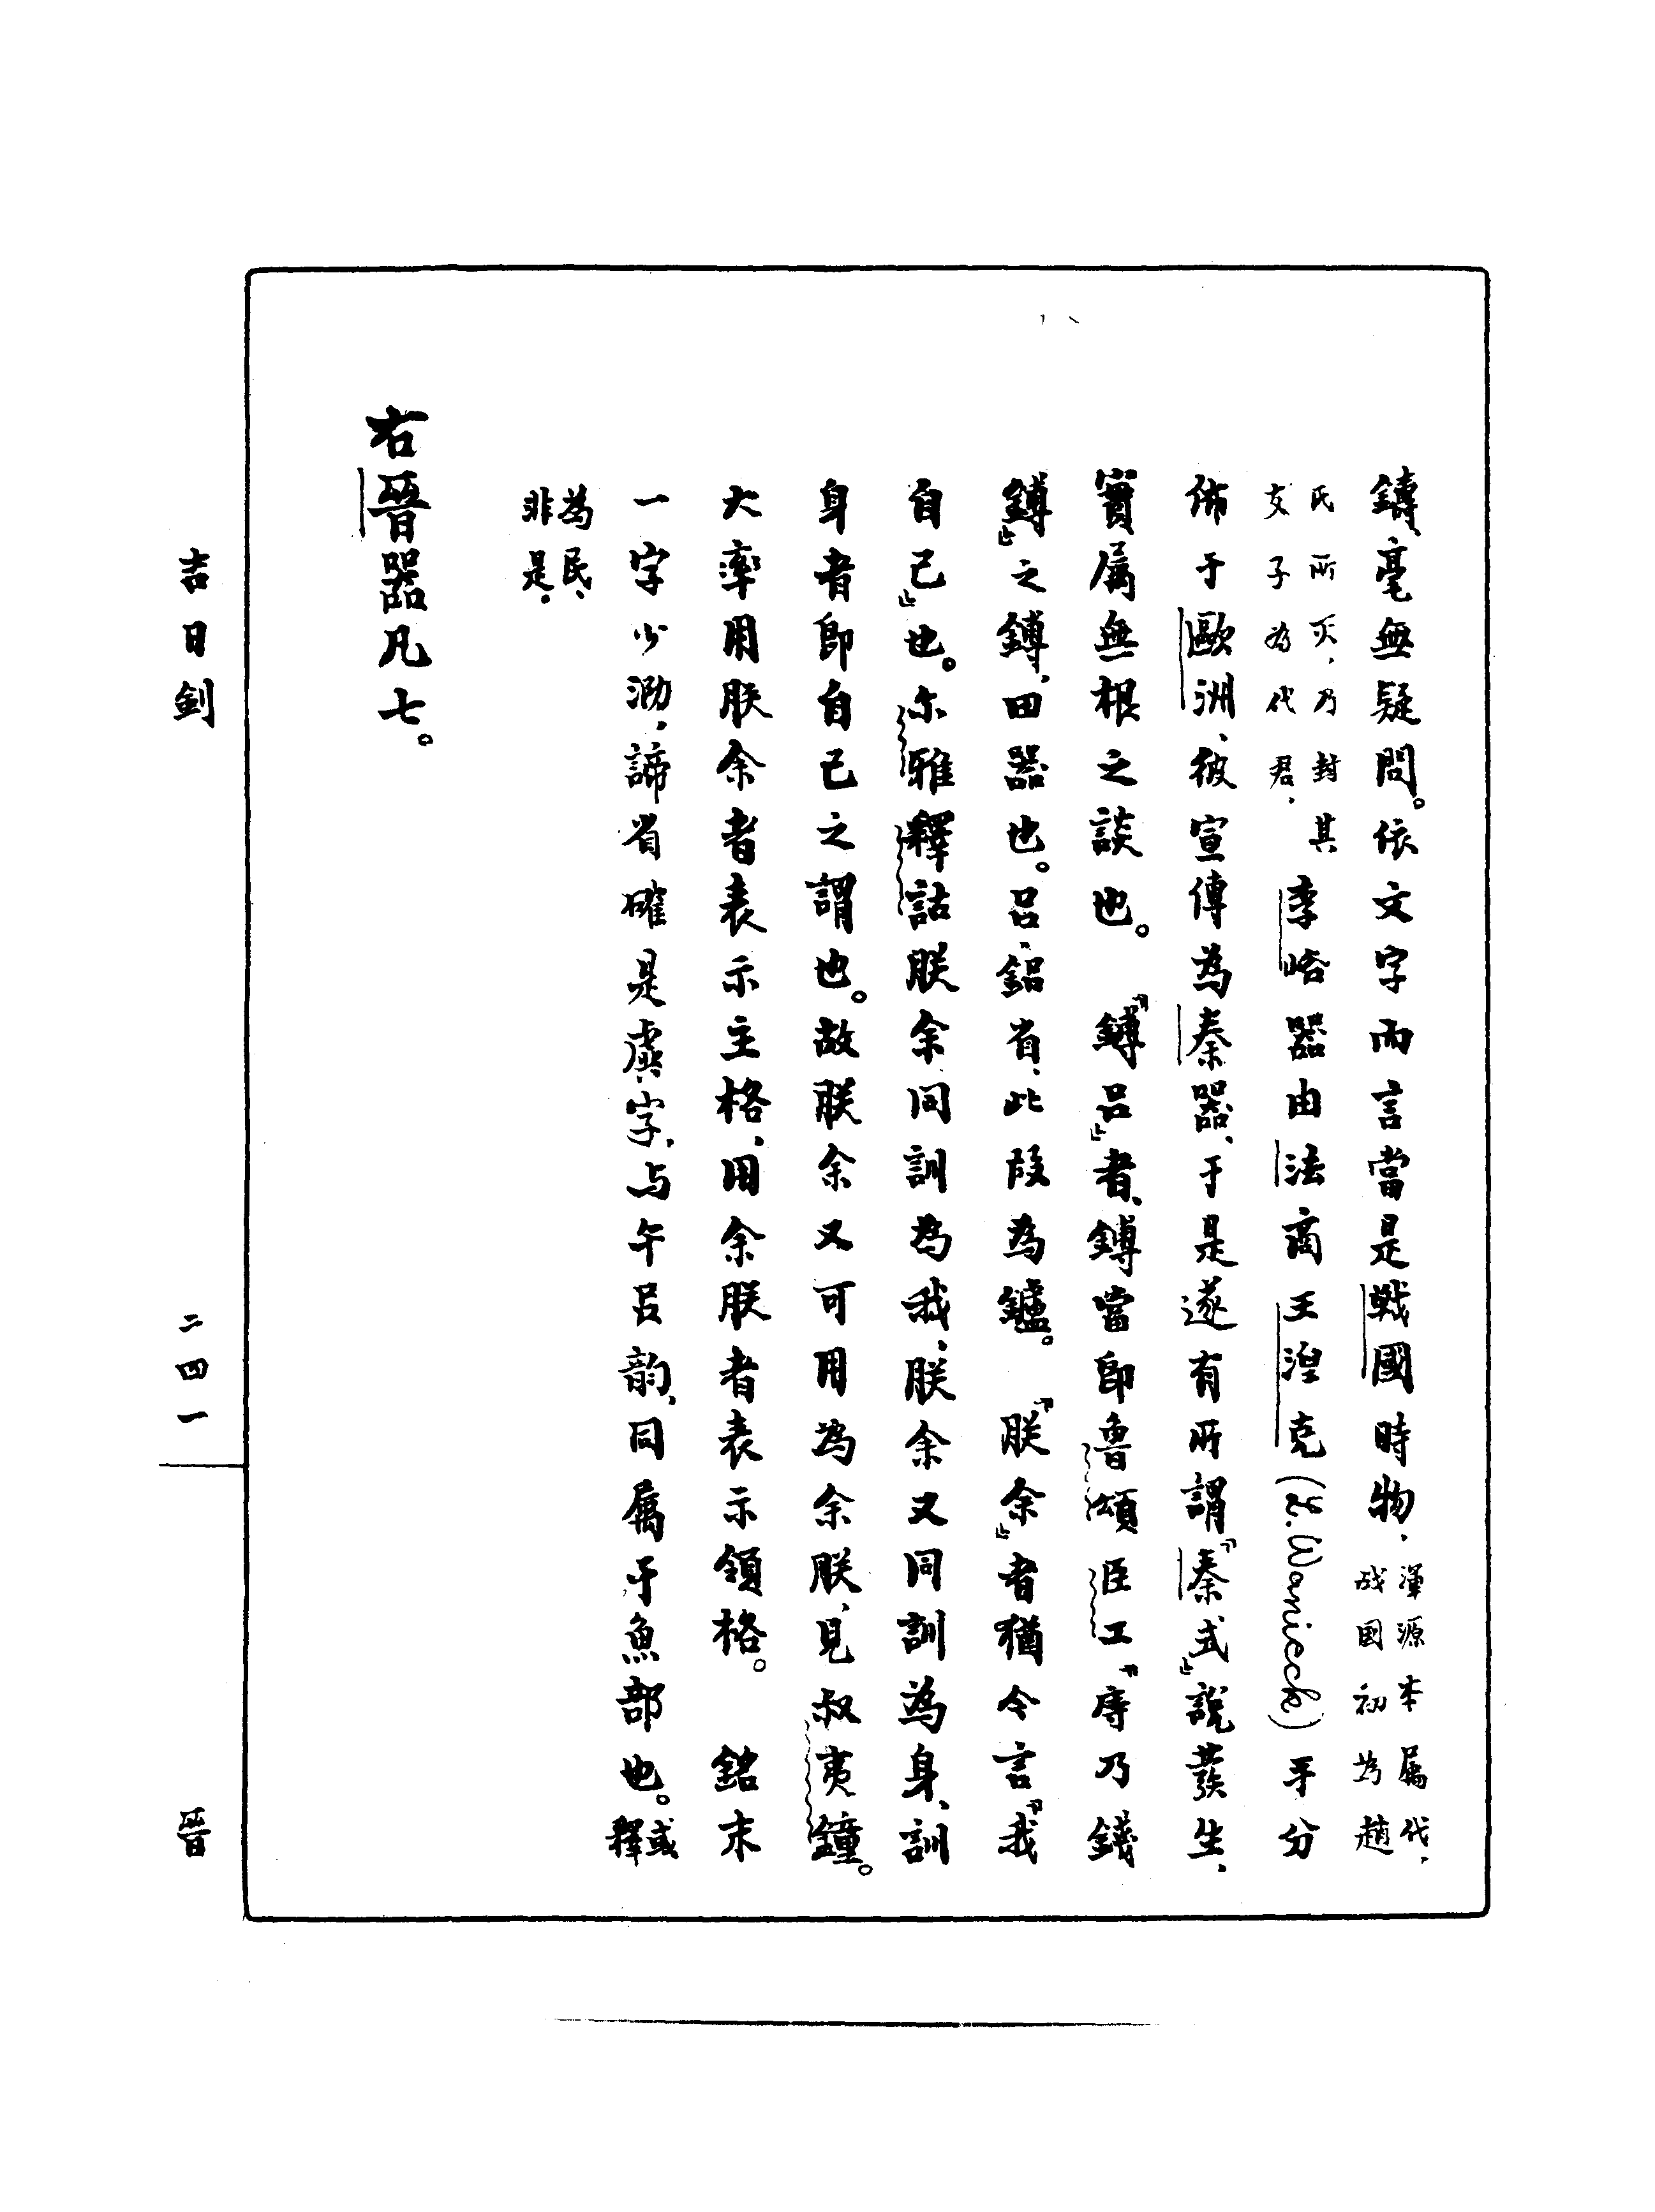 鑄、毫無疑問。依文字而言當是戰國時物，渾源本屬代，戰國初為趙
氏所灭，乃封其支子為代君。李峪器由法商王涅克(L.Wanieck)手分
佈于歐洲、彼宣傳為秦器，于是遂有所謂『秦式』說發生，
實屬無根之談也。『鎛呂』者、鎛當即魯頌臣工『庤乃錢
鎛』之鎛、田器也。呂、鋁省、此叚為鑪。『朕余』者猶今言『我
自己』也。尔雅釋詁朕余同訓為我、朕余又同訓為身、訓
身者即自己之謂也。故朕余又可用為余朕，見叔夷鐘。
大率用朕余者表示主格、用余朕者表示領格。銘末
一字少泐，諦省確是虞字，与午呂韵、同屬于魚部也。或釋
為民、非是。
右晉器凡七。
吉日劍
二四一
晉